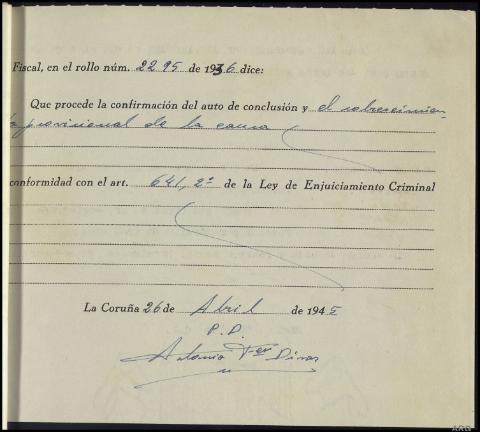 Fiscal, en el rollo núm. 2295 de 1936 dice:
Que procede la confirmación del auto de conclusión y el sobreseimien-
to provisional de la causa
conformidad con el art. 641, 2º de la Ley de Enjuiciamiento Criminal
La Coruña 26 de Abril de 194
P.D.
Antonio Fer
ARG